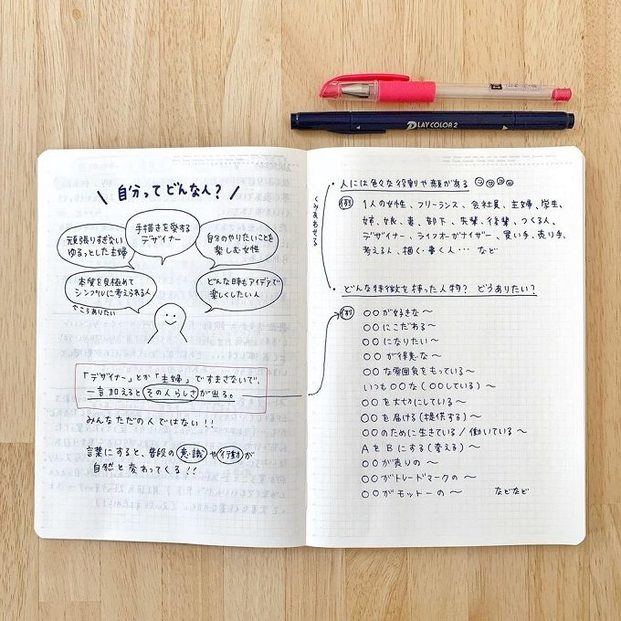 PLAY COLOR 2
自分ってどんな人?
頑張りすぎない
ゆるっとした主婦
手描きを愛する
デザイナー
自分のやりたいことを
楽しむ女性
本質を見極めて
シンプルに考えられる人
でこうありたい
どんな時もアイデアで
楽しくしたい人
「デザイナー」とか「主婦」ですまさないで、
一言加えるとその人らしさが出る。
みんなただの人ではない!!
言葉にすると、普段の意識や行動が
自然と変わってくる!!
くみあわせる
・人には色々な役割や顔がある
例 1人の女性、フリーランス、会社員、主婦、学生、
姉、娘、妻、部下、先輩、後輩、つくる人、
デザイナー、ライフオーガナイザー、買い手、売り手、
考える人、描く・書く人… など
・どんな特徴を持った人物? どうありたい?
例 ○○が好きな〜
○○にこだわる〜
○○になりたい〜
○○が得意な〜
○○な雰囲気をもっている〜
いつも○○な(○○している)〜
○○を大切にしている〜
○○を届ける(提供する)〜
○○のために生きている/働いている〜
AをBにする(変える)〜
○○が売りの〜
○○がトレードマークの〜
○○がモットーの〜 などなど